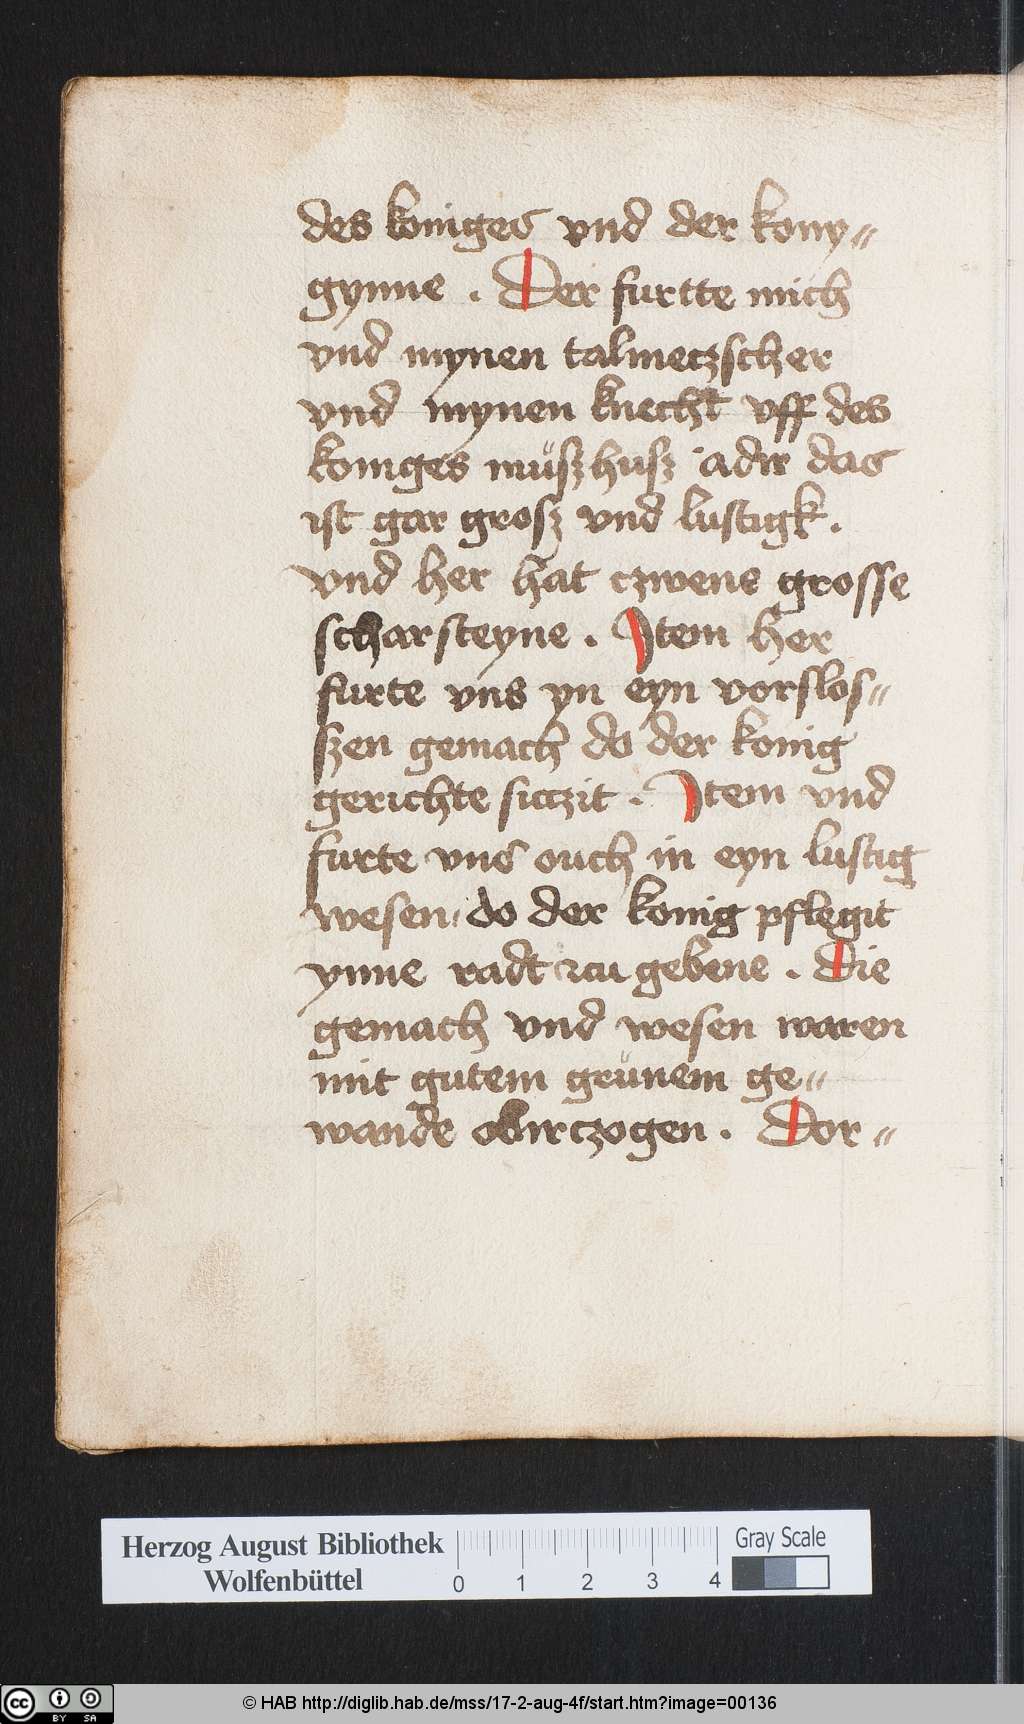 des koniges vnd der kony⸗
gynne . Der furtte mich
vnd mynen talmeczscher
vnd mynen knecht vff des
koniges müszhusz adir das
ist gar grosz vnd lustigk .
vnd her hat czwene grosse
scharsteyne . Item her
furte vns yn eyn vorslos⸗
szen gemach do der konig
gerichte siczit . Item vnd
furte vns ouch in eyn lustig
wesen · do der konig pflegit
ynne radt czu gebene . Die
gemach vnd wesen waren
mit gutem grünem ge⸗
wande obirczogen . Dor⸗
Herzog August Bibliothek
Wolfenbüttel
0 1 2 3 4
Gray Scale
cc BY SA
© HAB http://diglib.hab.de/mss/17-2-aug-4f/start.htm?image=00136